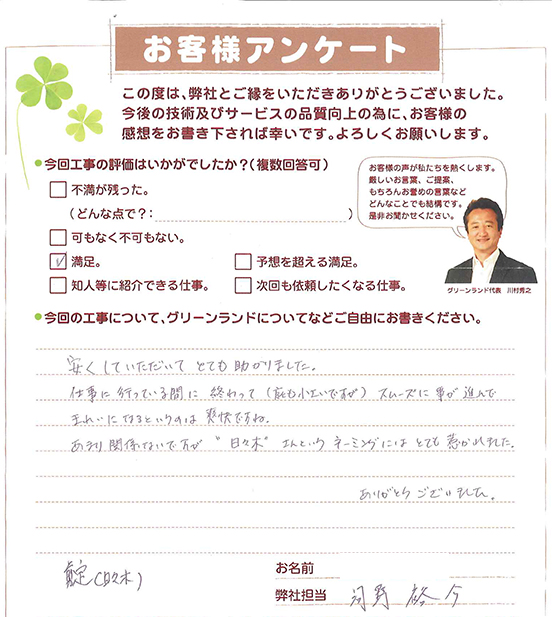 お客様アンケート
この度は、弊社とご縁をいただきありがとうございました。
今後の技術及びサービスの品質向上の為に、お客様の
感想をお書き下されば幸いです。よろしくお願いします。
●今回工事の評価はいかがでしたか？(複数回答可)
不満が残った。
(どんな点で？: )
可もなく不可もない。
満足。
予想を超える満足。
知人等に紹介できる仕事。
次回も依頼したくなる仕事。
お客様の声が私たちを熱くします。
厳しいお言葉、ご提案、
もちろんお誉めの言葉など
どんなことでも結構です。
是非お聞かせください。
グリーンランド代表 川村秀之
●今回の工事について、グリーンランドについてなどご自由にお書きください。
安くしていただいて とても 助かりました。
仕事に行っている間に 終わって (庭も小さいですが) スムーズに 事が 進んで
きれいになるというのは 爽快ですね。
あまり関係ないですが "日々木" さんという ネーミングには とても 惹かれました。
ありがとうございました。
(日々木)
お名前
弊社担当 河野